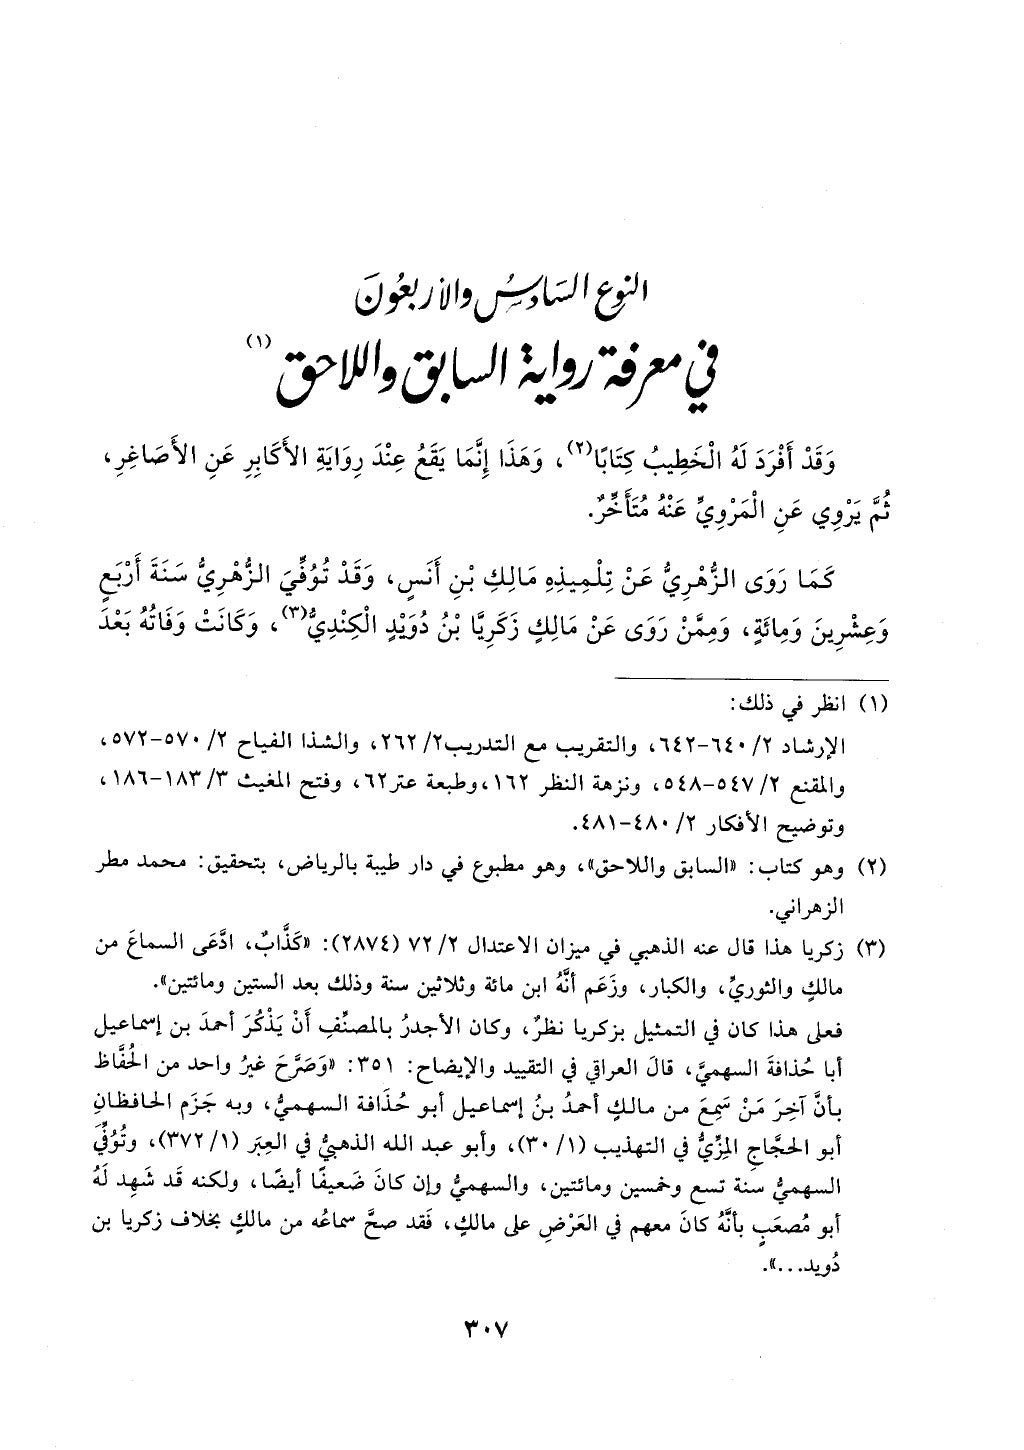 النوع السَادسُ والأربعُونَ
في معرفة رواية السابق واللاحق (١)
وَقَدْ أَفْرَدَ لَهُ الْخَطِيبُ كِتَابًا(٢)، وَهَذَا إِنَّمَا يَقَعُ عِنْدَ رِوَايَةِ الأَكَابِرِ عَنِ الأَصَاغِرِ،
ثُمَّ يَرْوِي عَنِ الْمَرْوِيِّ عَنْهُ مُتَأَخِّرٌ.
كَمَا رَوَى الزُّهْرِيُّ عَنْ تِلْمِيذِهِ مَالِكِ بْنِ أَنَسٍ، وَقَدْ تُوُفِّيَ الزُّهْرِيُّ سَنَةَ أَرْبَعٍ
وَعِشْرِينَ وَمِائَةٍ، وَمِمَّنْ رَوَى عَنْ مَالِكٍ زَكَرِيَّا بْنُ دُوَيْدٍ الْكِنْدِيُّ(٣)، وَكَانَتْ وَفَاتُهُ بَعْدَ
(١) انظر في ذلك:
الإرشاد ٢/ ٦٤٠-٦٤٢، والتقريب مع التدريب٢/ ٢٦٢، والشذا الفياح ٢/ ٥٧٠-٥٧٢،
والمقنع ٢/ ٥٤٧-٥٤٨، ونزهة النظر ١٦٢،وطبعة عتر٦٢، وفتح المغيث ٣/ ١٨٣-١٨٦،
وتوضيح الأفكار ٢/ ٤٨٠-٤٨١.
(٢) وهو كتاب: «السابق واللاحق»، وهو مطبوع في دار طيبة بالرياض، بتحقيق: محمد مطر
الزهراني.
(٣) زكريا هذا قال عنه الذهبي في ميزان الاعتدال ٢/ ٧٢ (٢٨٧٤): «كَذَّابٌ، ادَّعَى السماعَ من
مالكٍ والثوريِّ، والكبار، وزَعَم أنَّهُ ابن مائة وثلاثين سنة وذلك بعد الستين ومائتين».
فعلى هذا كان في التمثيل بزكريا نظرٌ، وكان الأجدرُ بالمصنِّفِ أَنْ يَذْكُرَ أحمدَ بن إسماعيل
أبا حُذافةَ السهميَّ، قالَ العراقي في التقييد والإيضاح: ٣٥١: «وَصَرَّحَ غيرُ واحد من الحُفَّاظ
بأنَّ آخِرَ مَنْ سَمِعَ من مالكٍ أحمدُ بنُ إسماعيل أبو حُذافة السهميُّ، وبه جَزَم الحافظانِ
أبو الحجَّاجِ المِزِّيُّ في التهذيب (١/ ٣٠)، وأبو عبد الله الذهبيُّ في العِبَر (١/ ٣٧٢)، وتُوُفِّيَ
السهميُّ سنة تسع وخمسين ومائتين، والسهميُّ وإن كانَ ضَعيفًا أيضًا، ولكنه قَد شَهِد لَهُ
أبو مُصعَبٍ بأنَّهُ كانَ معهم في العَرْضِ على مالكٍ، فَقد صحَّ سماعُه من مالكٍ بخلاف زكريا بن
دُويد...».
٣٠٧